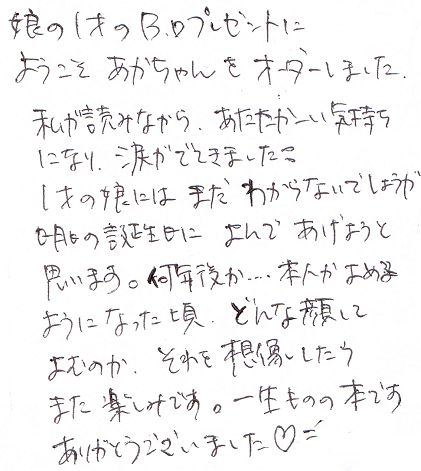 娘の1才のB.Dプレゼントに
ようこそあかちゃんをオーダーしました.
私が読みながら、あたたかーい気持ち
になり、涙がでてきました
1才の娘にはまだわからないでしょうが
明日の誕生日によんであげようと
思います。何年後か....本人がよめる
ようになった頃、どんな顔して
よむのか、それを想像したら
また楽しみです。一生ものの本です
ありがとうございました♡